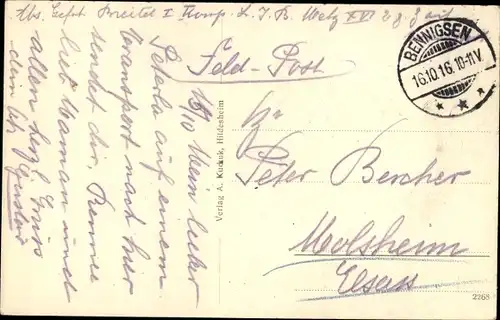 Abs. Gefr. Breitel I Komp. L. I. B. Metz XVI
Feld-Post
BENNIGSEN
16.10.16. 10-11V.
16/10 Mein lieber
Peterla auf einem
Transport nach hier
sendet dir, Rennee
lieb Maman und
allen herzl. Gruss
dein
Verlag A. Kučzuk, Hildesheim
Peter Bercher
Molsheim
Elsass
2268